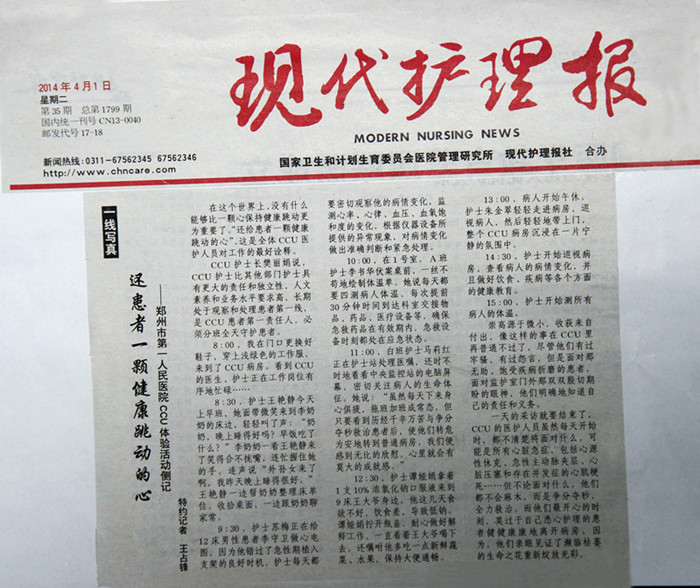 2014年4月1日
星期二
第35期 总第1799期
国内统一刊号CN13-0040
邮发代号17-18
新闻热线:0311-67562345 67562346
http://www.chncare.com
现代护理报
MODERN NURSING NEWS
国家卫生和计划生育委员会医院管理研究所 现代护理报社 合办
一线写真
还患者一颗健康跳动的心
——郑州市第一人民医院CCU体验活动侧记
特约记者 王占锋
在这个世界上,没有什么
能够比一颗心保持健康跳动更
为重要了。“还给患者一颗健康
跳动的心”,这是全体CCU医
护人员对工作的最好诠释。
CCU护士长樊丽娟说,
CCU护士比其他部门护士具
有更大的责任和独立性,人文
素养和业务水平要求高,长期
处于观察和处理患者第一线,
是CCU患者第一责任人,必
须分班全天守护患者。
8:00,我在门口更换好
鞋子,穿上浅绿色的工作服,
来到了CCU病房。看到CCU
的医生、护士正在工作岗位有
序地忙碌……
8:30,护士王艳静今天
上早班,她面带微笑来到李奶
奶的床边,轻轻叫了声:“奶
奶,晚上睡得好吗?早饭吃了
什么?”李奶奶一看王艳静来
了笑得合不拢嘴,连忙握住她
的手,连声说“外孙女来了
啊,我昨天晚上睡得很好。”
王艳静一边帮奶奶整理床单
位,收拾桌面,一边跟奶奶聊
家常。
9:30,护士苏梅正在给
12床男性患者李守卫做心电
图。因为他错过了急性期植入
支架的良好时机,护士每天都
要密切观察他的病情变化,监
测心率,心律,血压,血氧饱
和度的变化,根据仪器设备所
提供的异常现象,对病情变化
做出准确判断和紧急处理。
10:00,在1号室,A班
护士李书华伏案桌前,一丝不
苟地绘制体温单。她说每天都
要四测病人体温,每次提前
30分钟时间到达科室交接物
品、药品、医疗设备等,确保
急救药品在有效期内,急救设
备时刻都处在应急状态。
11:00,白班护士马莉红
正在护士站处理医嘱,还时不
时地看看中央监控站的电脑屏
幕,密切关注病人的生命体
征。她说:“虽然每天下来身
心俱疲,拖班加班成常态,但
只要看到历经千辛万苦与争分
夺秒救治患者后,使他们转危
为安地转到普通病房,我们便
感到无比的欣慰,心里就会有
莫大的成就感。”
12:30,护士谭娅娟拿着
1支10%浓氯化钠口服液来到
9床王大爷身边,他这几天食
欲不好,饮食差,导致低钠。
谭娅娟打开瓶盖,耐心做好解
释工作,一直看着王大爷喝下
去,还嘱咐他多吃一点新鲜蔬
菜、水果,保持大便通畅。
13:00,病人开始午休,
护士朱金翠轻轻走进病房,巡
视病人,然后轻轻地带上门,
整个CCU病房沉浸在一片宁
静的氛围中。
14:30,护士开始巡视病
房,查看病人的病情变化,并
且做好饮食、疾病等各个方面
的健康教育。
15:00,护士开始测所有
病人的体温。
崇高源于微小,收获来自
付出,像这样的事在CCU里
再普通不过了,尽管他们有过
牢骚,有过怨言,但是面对那
无助、饱受疾病折磨的患者,
面对监护室门外那双双殷切期
盼的眼神,他们明确地知道自
己的责任和义务。
一天的采访就要结束了,
CCU的医护人员虽然每天开始
时,都不清楚将面对什么,可
能是所有心脏急症,包括心源
性休克、急性主动脉夹层、心
脏压塞和存在并发症的心肌梗
死……但不论面对什么,他们
都不会麻木,而是争分夺秒,
全力救治。而他们最开心的时
刻,莫过于自己悉心护理的患
者健健康康地离开病房,因
为,他们亲眼见证了濒临枯萎
的生命之花重新绽放光彩。